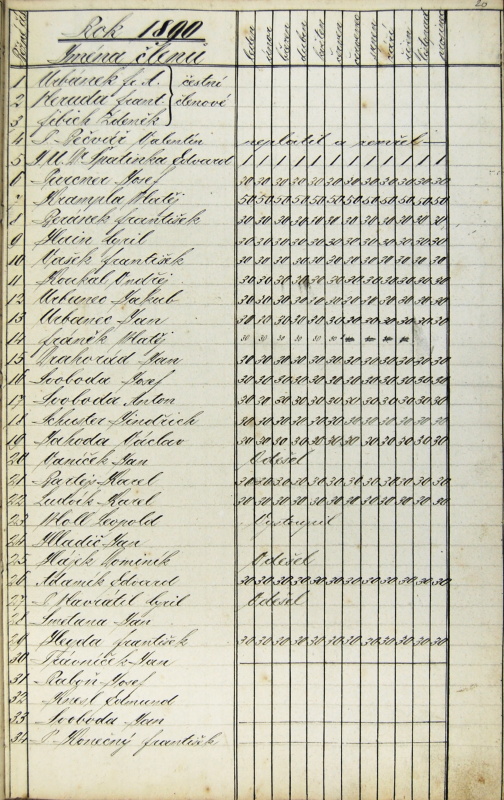 20
Rok 1890
Jména členů
leden únor březen duben květen červen červenec srpen září říjen listopad prosinec
1 Urbánek fr. A. čestní
2 Heruda frant. členové
3 fibich Zdeněk
4 P. Pečvář Valentin neplatil a nemečl
5 J.U.Dr Spatinka Edvard 1 1 1 1 1 1 1 1 1 1 1 1
6 Purcner Josef 30 30 30 30 30 30 30 30 30 30 30 30
7 Krampla Matěj 50 50 50 50 50 50 50 50 50 50 50 50
8 Beránek františek 30 30 30 30 30 30 30 30 30 30 30 30
9 Hain Cyril 30 30 30 30 30 30 30 30 30 30 30 30
10 Vašek františek 30 30 30 30 30 30 30 30 30 30 30 30
11 Roubal Ondřej 30 30 30 30 30 30 30 30 30 30 30 30
12 Urbanec Jakub 30 30 30 30 30 30 30 30 30 30 30 30
13 Urbanec Jan 30 30 30 30 30 30 30 30 30 30 30 30
14 franěk Matěj 30 30 30 30 30 30
15 Drahorád Jan 30 30 30 30 30 30 30 30 30 30 30 30
16 Svoboda Josef 30 30 30 30 30 30 30 30 30 30 30 30
17 Svoboda Anton 30 30 30 30 30 30 30 30 30 30 30 30
18 Schuster Jindřich 30 30 30 30 30 30 30 30 30 30 30 30
19 Jahoda Václav 30 30 30 30 30 30 30 30 30 30 30 30
20 Vaníček Jan Odešel
21 Karel 30 30 30 30 30 30 30 30 30 30 30 30
22 Ludvík Karel 30 30 30 30 30 30 30 30 30 30 30 30
23 Moll Leopold Vystoupil
24 Hladič Jan
25 Hájek Dominik Odešel
26 Adamík Edvard 30 30 30 30 30 30 30 30 30 30 30 30
27 P. Navrátil Cyril Odešel
28 Smetana Jan
29 Hyda františek 30 30 30 30 30 30 30 30 30 30 30 30
30 Trávníček Jan
31 Raboň Josef
32 Knesl Edmund
33 Svoboda Jan
34 P. Konečný františek